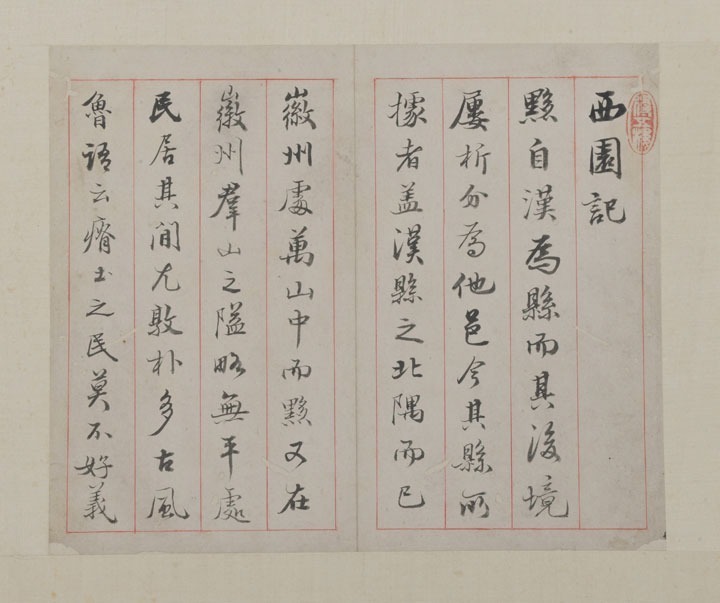 西園記
黟自漢為縣而其後境
屢析分為他邑今其縣所
據者盖漢縣之北隅而已
徽州處萬山中而黟又在
徽州羣山之隘略無平處
民居其間尤敦朴多古風
魯語云瘠土之民莫不好義